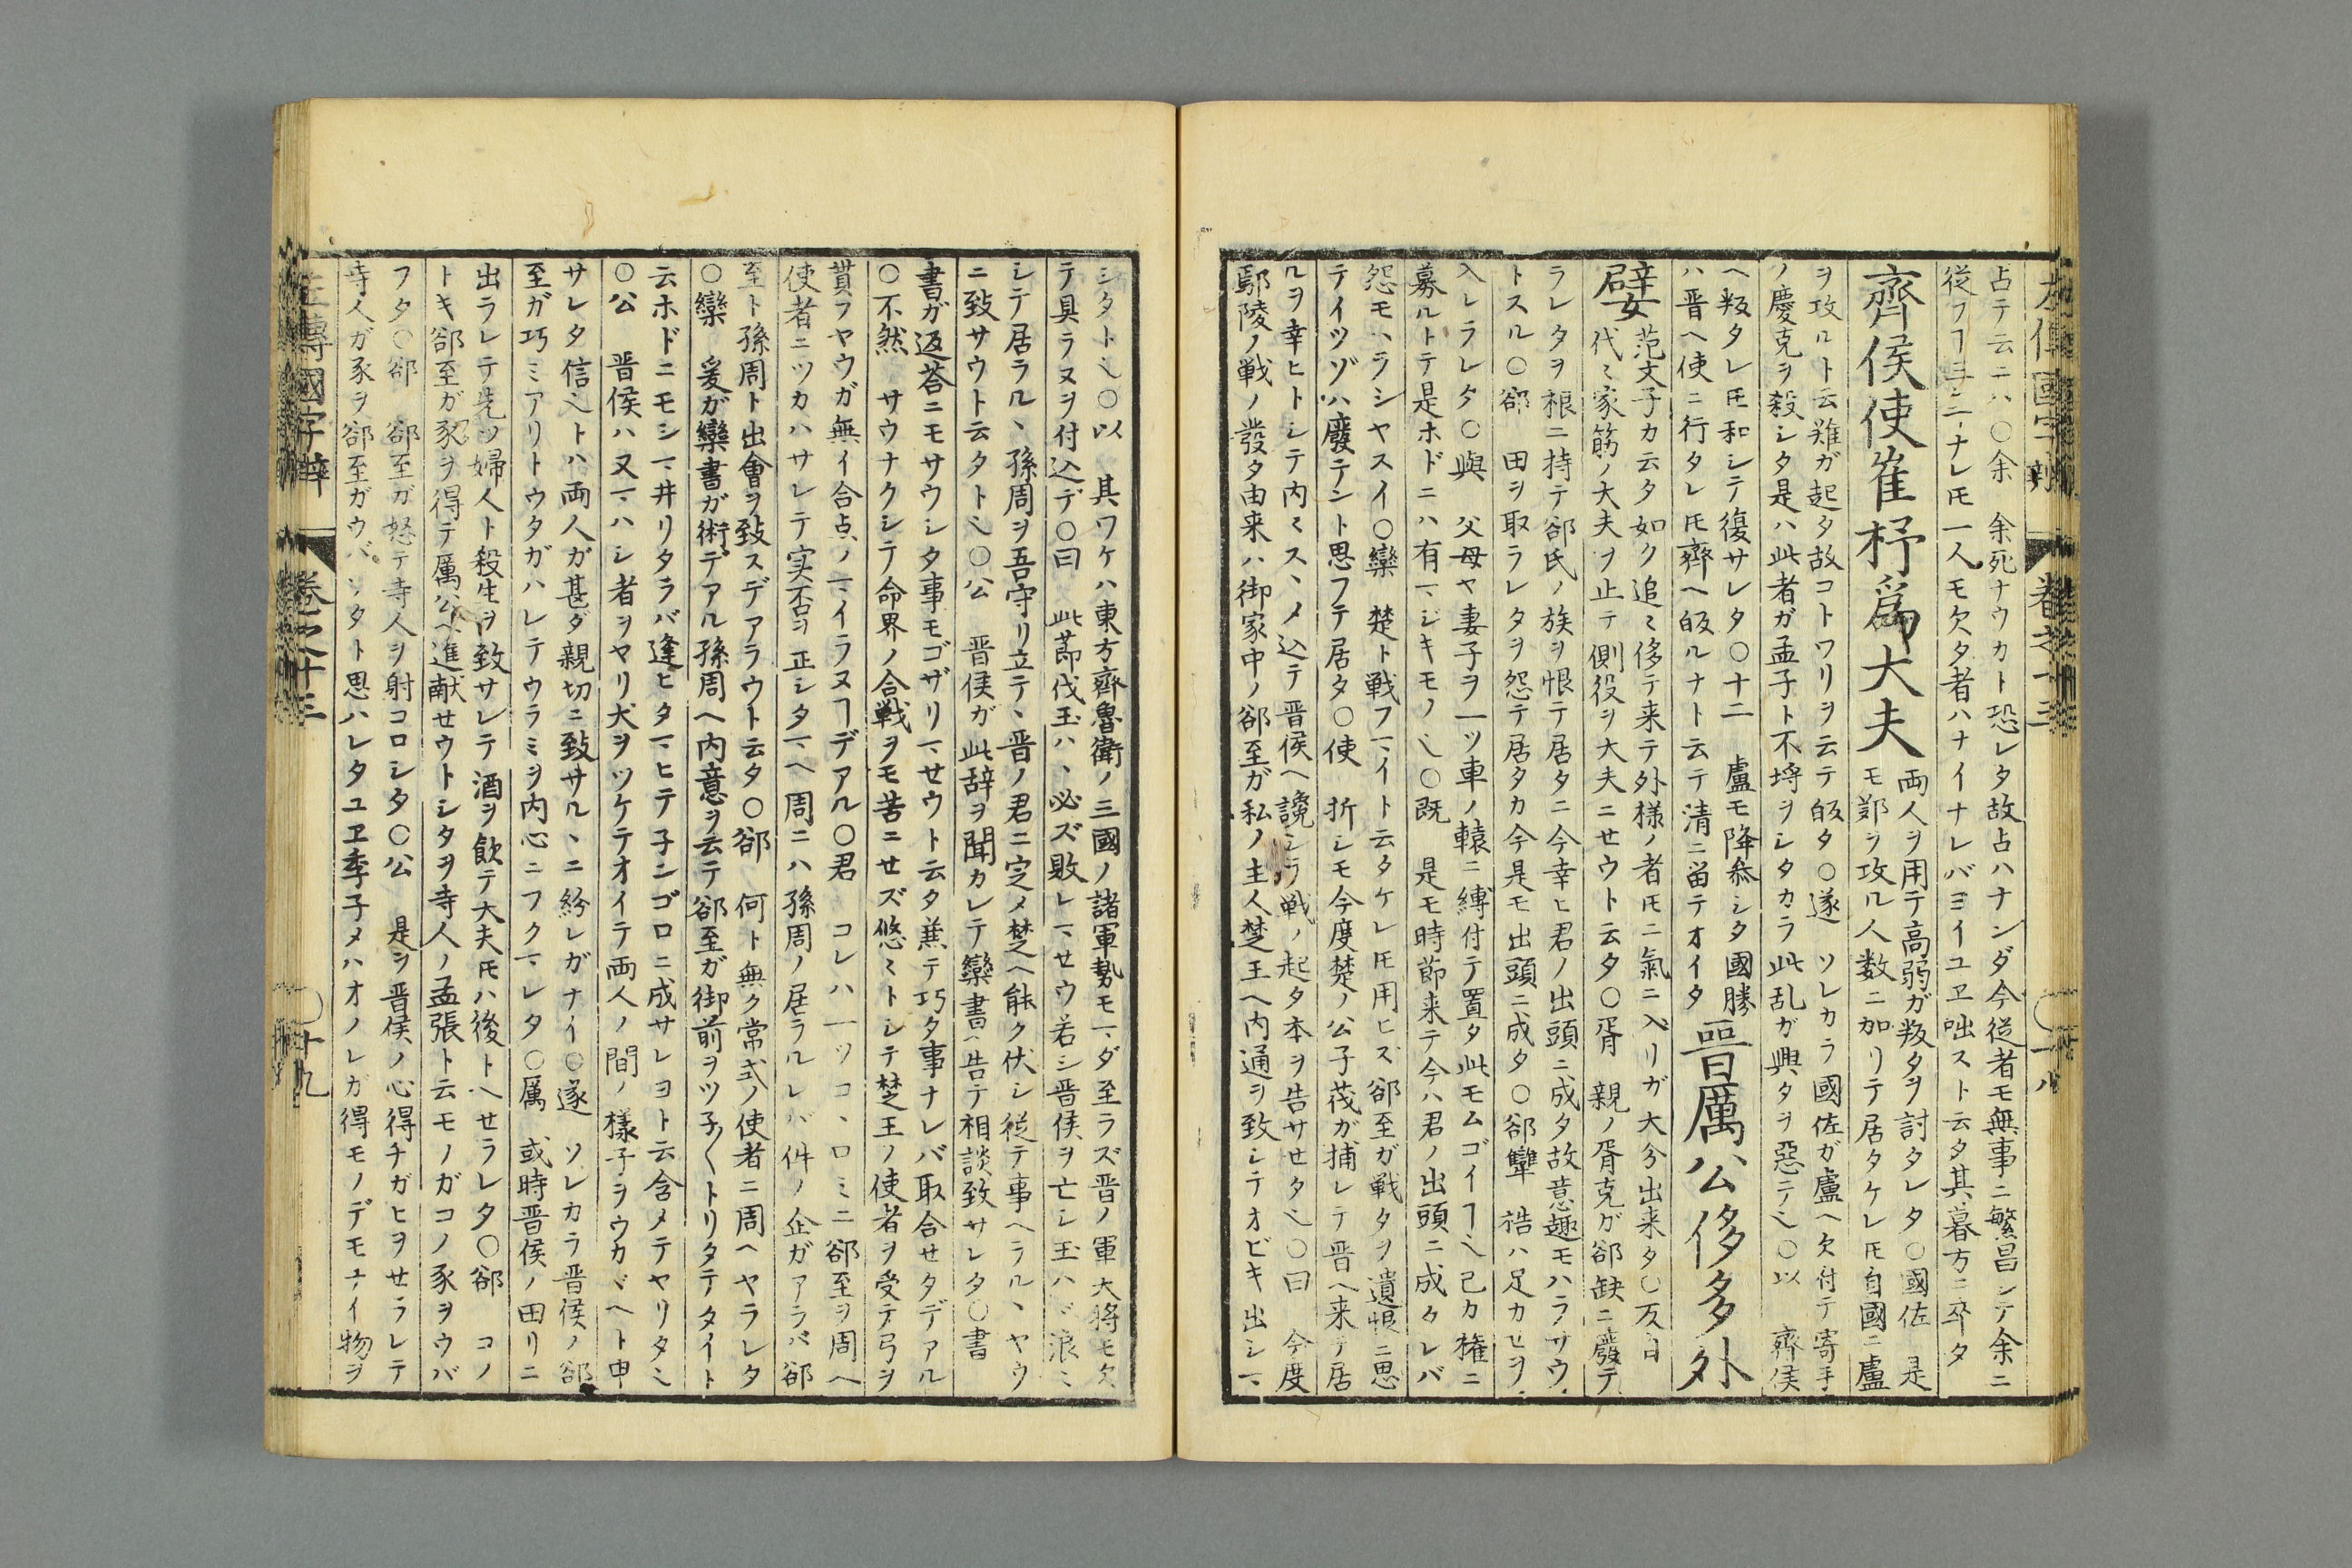 左傳國字辯 巻之十三 ○十八
占テ云ニハ○余 余死ナウカト恐レタ故占ハナンダ今従者モ無事ニ繁昌シテ余ニ
従フヿ三年ナレ𪜈一人モ欠タ者ハナイナレバヨイユヱ咄ストト云タ其暮方ニ卒タ
齊侯使崔杼爲大夫
両人ヲ用テ高弱ガ叛タヲ討タレタ○國佐 是
モ鄭ヲ攻ル人数ニ加リテ居タケレ𪜈自國ニ盧
ヲ攻ルト云難ガ起タ故コトワリヲ云テ皈タ○遂 ソレカラ國佐ガ盧ヘ欠付テ寄手
ノ慶克ヲ殺シタ是ハ此者ガ孟子ト不埒ヲシタカラ此乱ガ興タヲ惡テ也○以 齊侯
ヘ叛タレ𪜈和シテ復サレタ○十二 盧モ降叅シタ國勝
ハ晋ヘ使ニ行タレ𪜈齊ヘ皈ルナト云テ清ニ留テオイタ
晋厲公侈多外
嬖 范文子カ云タ如ク追〻侈テ来テ外様ノ者𪜈ニ氣ニ入リガ大分出来タ○反自
代〻家筋ノ大夫ヲ止テ側役ヲ大夫ニセウト云タ○胥 親ノ胥克ガ郤缺ニ廢テ
ラレタヲ根ニ持テ郤氏ノ族ヲ恨テ居タニ今幸ヒ君ノ出頭ニ成タ故意趣モハラサウ
トスル○郤 田ヲ取ラレタヲ怨テ居タカ今是モ出頭ニ成タ○郤犫 梏ハ足カセヲ
入レラレタ○與 父母ヤ妻子ヲ一ツ車ノ轅ニ縛付テ置タ此モムゴイヿ也己カ権ニ
募ルトテ是ホドニハ有マジキモノ也○既 是モ時節来テ今ハ君ノ出頭ニ成タレバ
怨モハラシヤスイ○欒 楚ト戦フマイト云タケレ𪜈用ヒズ郤至ガ戦タヲ遺恨ニ思
テイツゾハ廢テント思フテ居タ○使 折シモ今度楚ノ公子茷ガ捕レテ晋ヘ来テ居
ルヲ幸ヒトシテ内〻スヽメ込テ晋侯ヘ讒シラ戦ノ起タ本ヲ告サセタ也○曰 今度
鄢陵ノ戦ノ發タ由来ハ御家中ノ郤至ガ私ノ主人楚王ヘ内通ヲ致シテオビキ出シマ
シタト也○以 其ワケハ東方齊魯衛ノ三國ノ諸軍勢モマダ至ラズ晋ノ軍大将モ欠
テ具ラヌヲ付込デ○曰 此節伐玉ハヽ必ズ敗レマセウ若シ晋侯ヲ亡シ玉ハヾ浪〻
シテ居ラルヽ孫周ヲ吾守リ立テヽ晋ノ君ニ定メ楚ヘ能ク伏シ従テ事ヘラルヽヤウ
ニ致サウト云タト也○公 晋侯ガ此辞ヲ聞カレテ欒書ヘ告テ相談致サレタ○書
書ガ返荅ニモサウシタ事モゴザリマセウト云タ蕪テ巧タ事ナレバ取合セタデアル
○不然 サウナクシテ命界ノ合戦ヲモ苦ニセズ悠〻トシテ楚王ノ使者ヲ受テ弓ヲ
貰フヤウガ無イ合点ノマイラヌヿデアル○君 コレハ一ツコヽロミニ郤至ヲ周ヘ
使者ニツカハサレテ実否ヲ正シタマヘ周ニハ孫周ノ居ラルレバ件ノ企ガアラバ郤
至ト孫周ト出會ヲ致スデアラウト云タ○郤 何ト無ク常式ノ使者ニ周ヘヤラレタ
○欒 爰ガ欒書ガ術デアル孫周ヘ内意ヲ云テ郤至ガ御前ヲツ子〱トリタテタイト
云ホドニモシマ井リタラバ逢ヒタマヒテ子ンゴロニ成サレヨト云含メテヤリタ也
○公 晋侯ハ又マハシ者ヲヤリ犬ヲツケテオイテ両人ノ間ノ様子ヲウカヾヘト申
サレタ信也トハ両人ガ甚ダ親切ニ致サルヽニ紛レガナイ○遂 ソレカラ晋侯ノ郤
至ガ巧ミアリトウタガハレテウラミヲ内心ニフクマレタ○厲 或時晋侯ノ田リニ
出ラレテ先ツ婦人ト殺生ヲ致サレテ酒ヲ飲テ大夫𪜈ハ後トヘセラレタ○郤 コノ
トキ郤至ガ豕ヲ得テ厲公ヘ進献セウトシタヲ寺人ノ孟張ト云モノガコノ豕ヲウバ
フタ○郤 郤至ガ怒テ寺人ヲ射コロシタ○公 是ヲ晋侯ノ心得チガヒヲセラレテ
寺人ガ豕ヲ郤至ガウバッタト思ハレタユヱ季子メハオノレガ得モノデモナイ物ヲ
左傳國字辯 巻之十三 ○十九